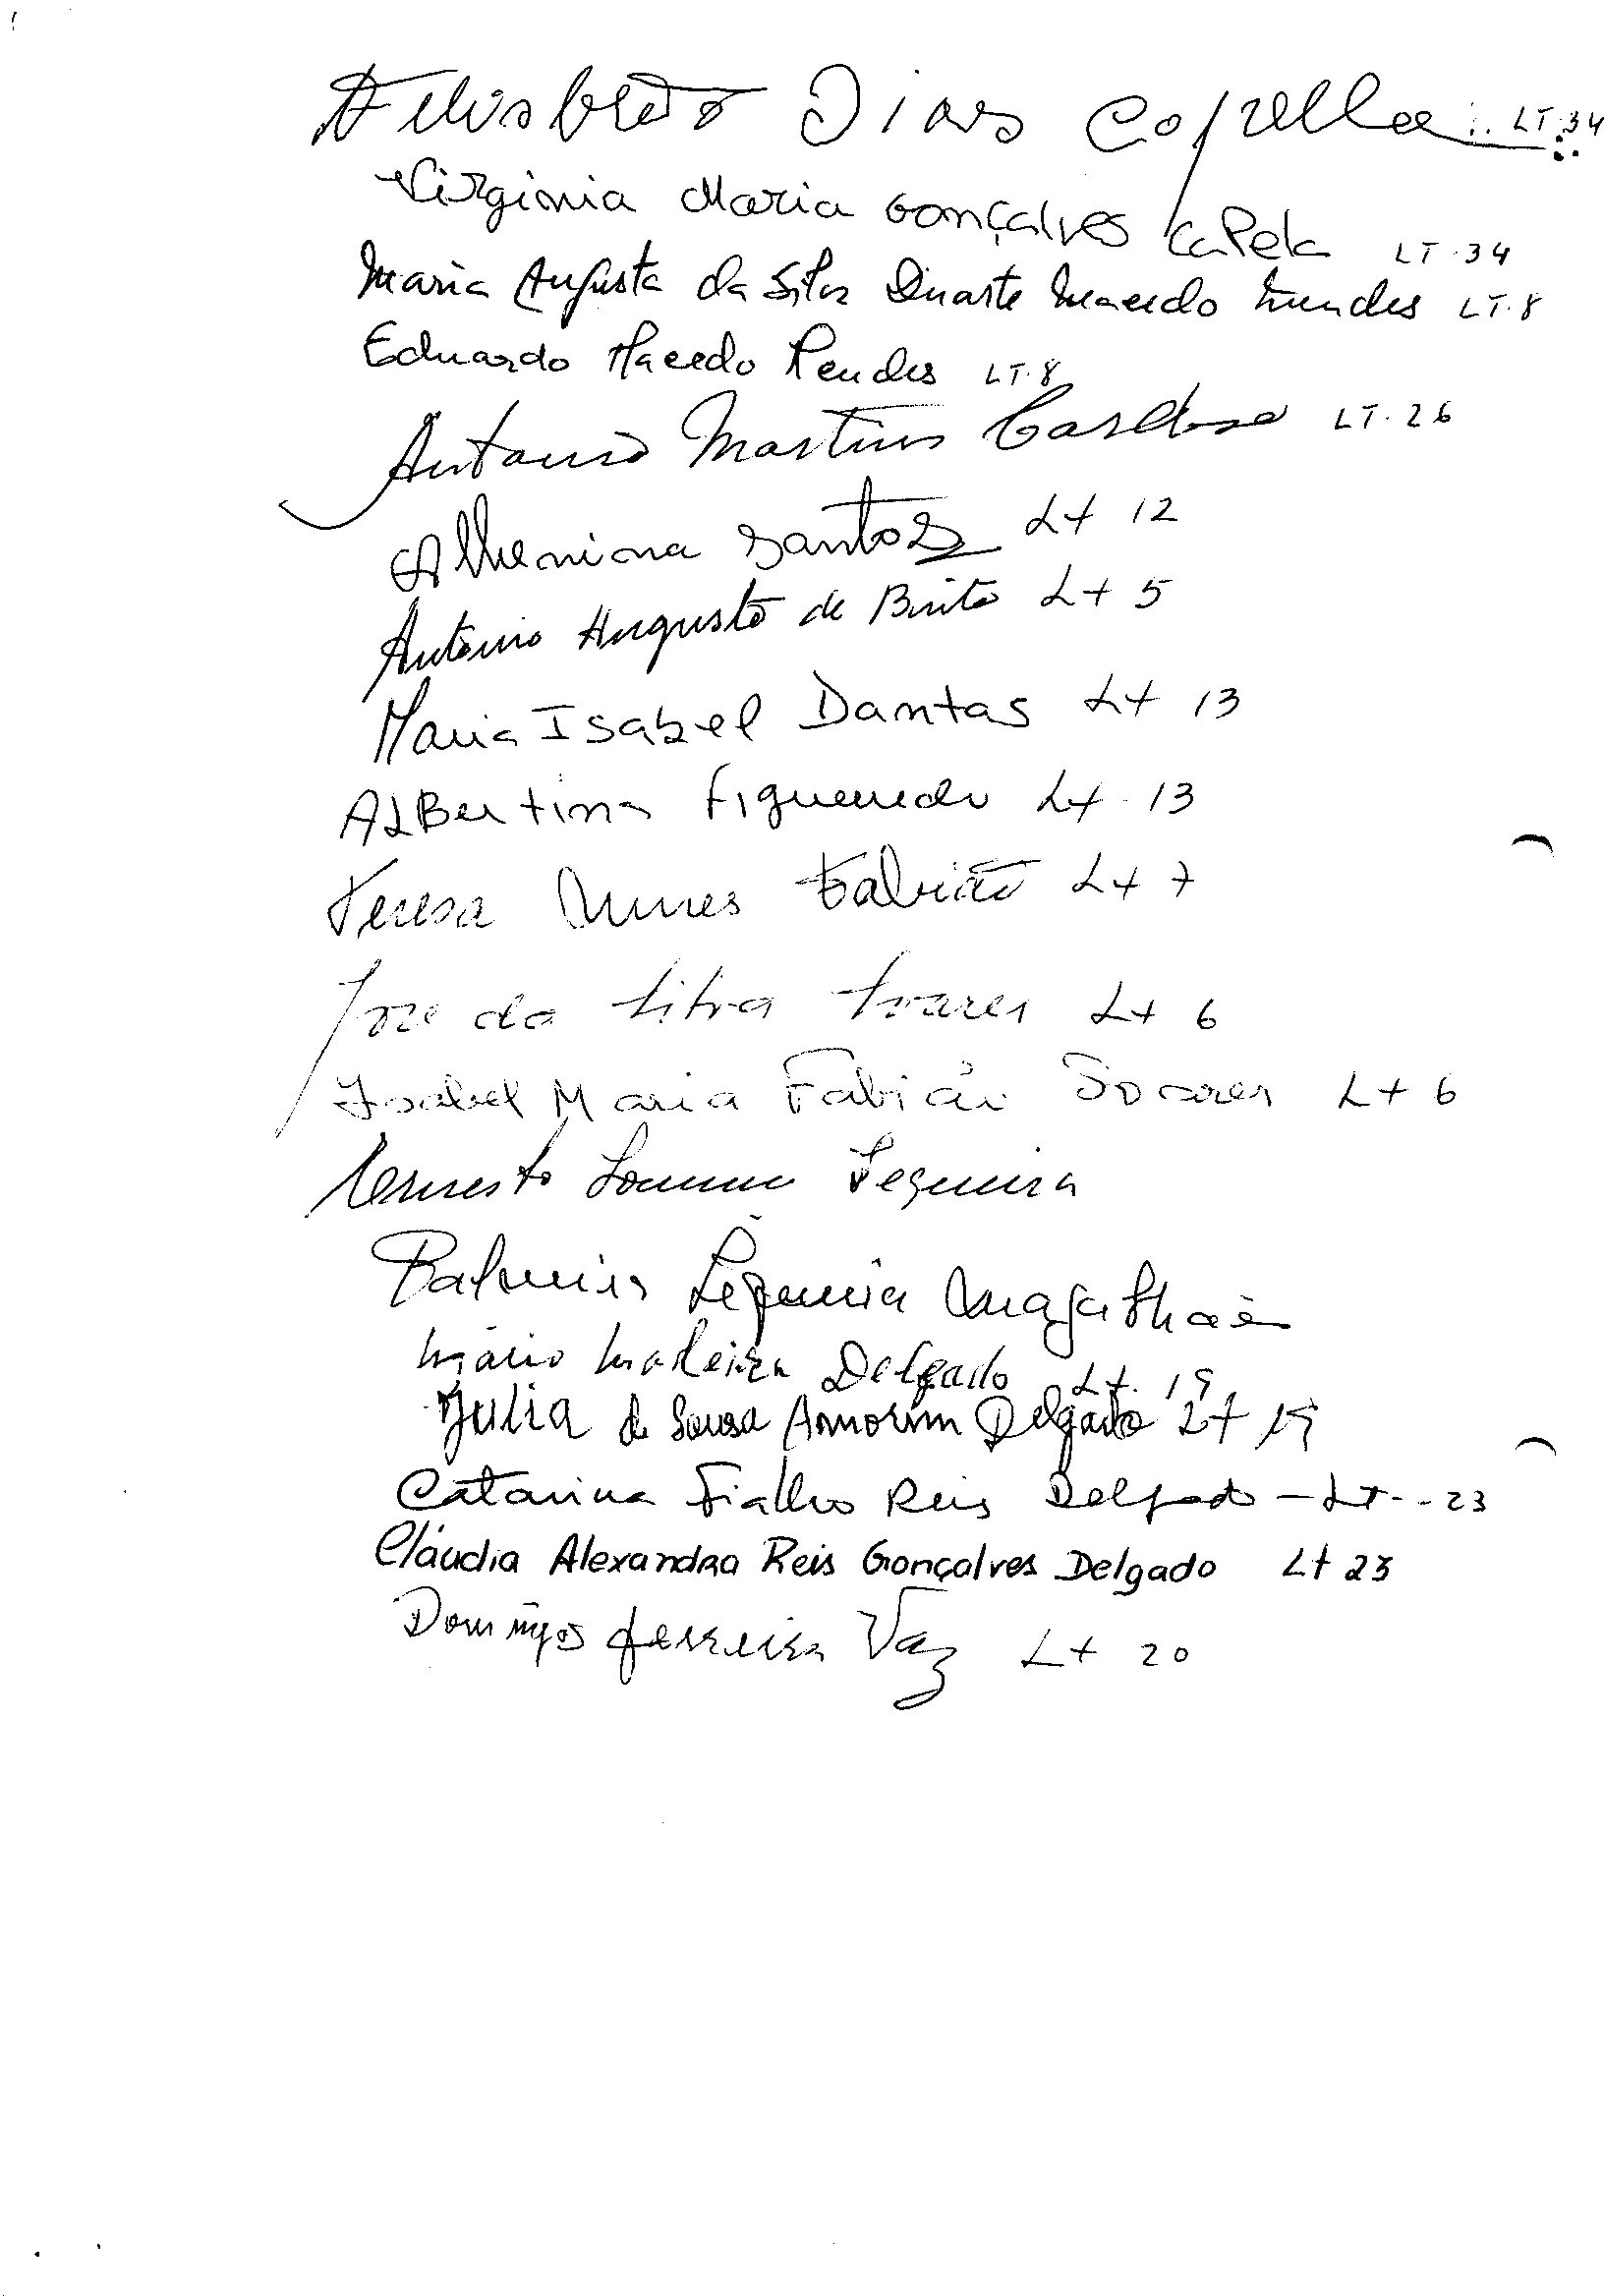 Dias Capella LT.34
Virginia Maria Gonçalves Capela LT.34
Maria Augusta da Silva Duarte Macedo Mendes LT.8
Eduardo Macedo Mendes LT.8
Antonio Martins Cardoso LT.26
Santos Lt 12
António Augusto de Brito Lt 5
Maria Isabel Dantas Lt 13
ALBertina Figueiredo Lt 13
Teresa Nunes Fabião Lt 7
José da Silva Soares Lt 6
Isabel Maria Fabião Soares Lt 6
Ernesto Sequeira
Palmira Sequeira Magalhães
Mário Madeira Delgado Lt. 19
Julia de Sousa Amorim Delgado Lt 19
Catarina Fialho Reis Delgado - LT - 23
Cláudia Alexandra Reis Gonçalves Delgado Lt 23
Domingos ferreira Vaz Lt 20